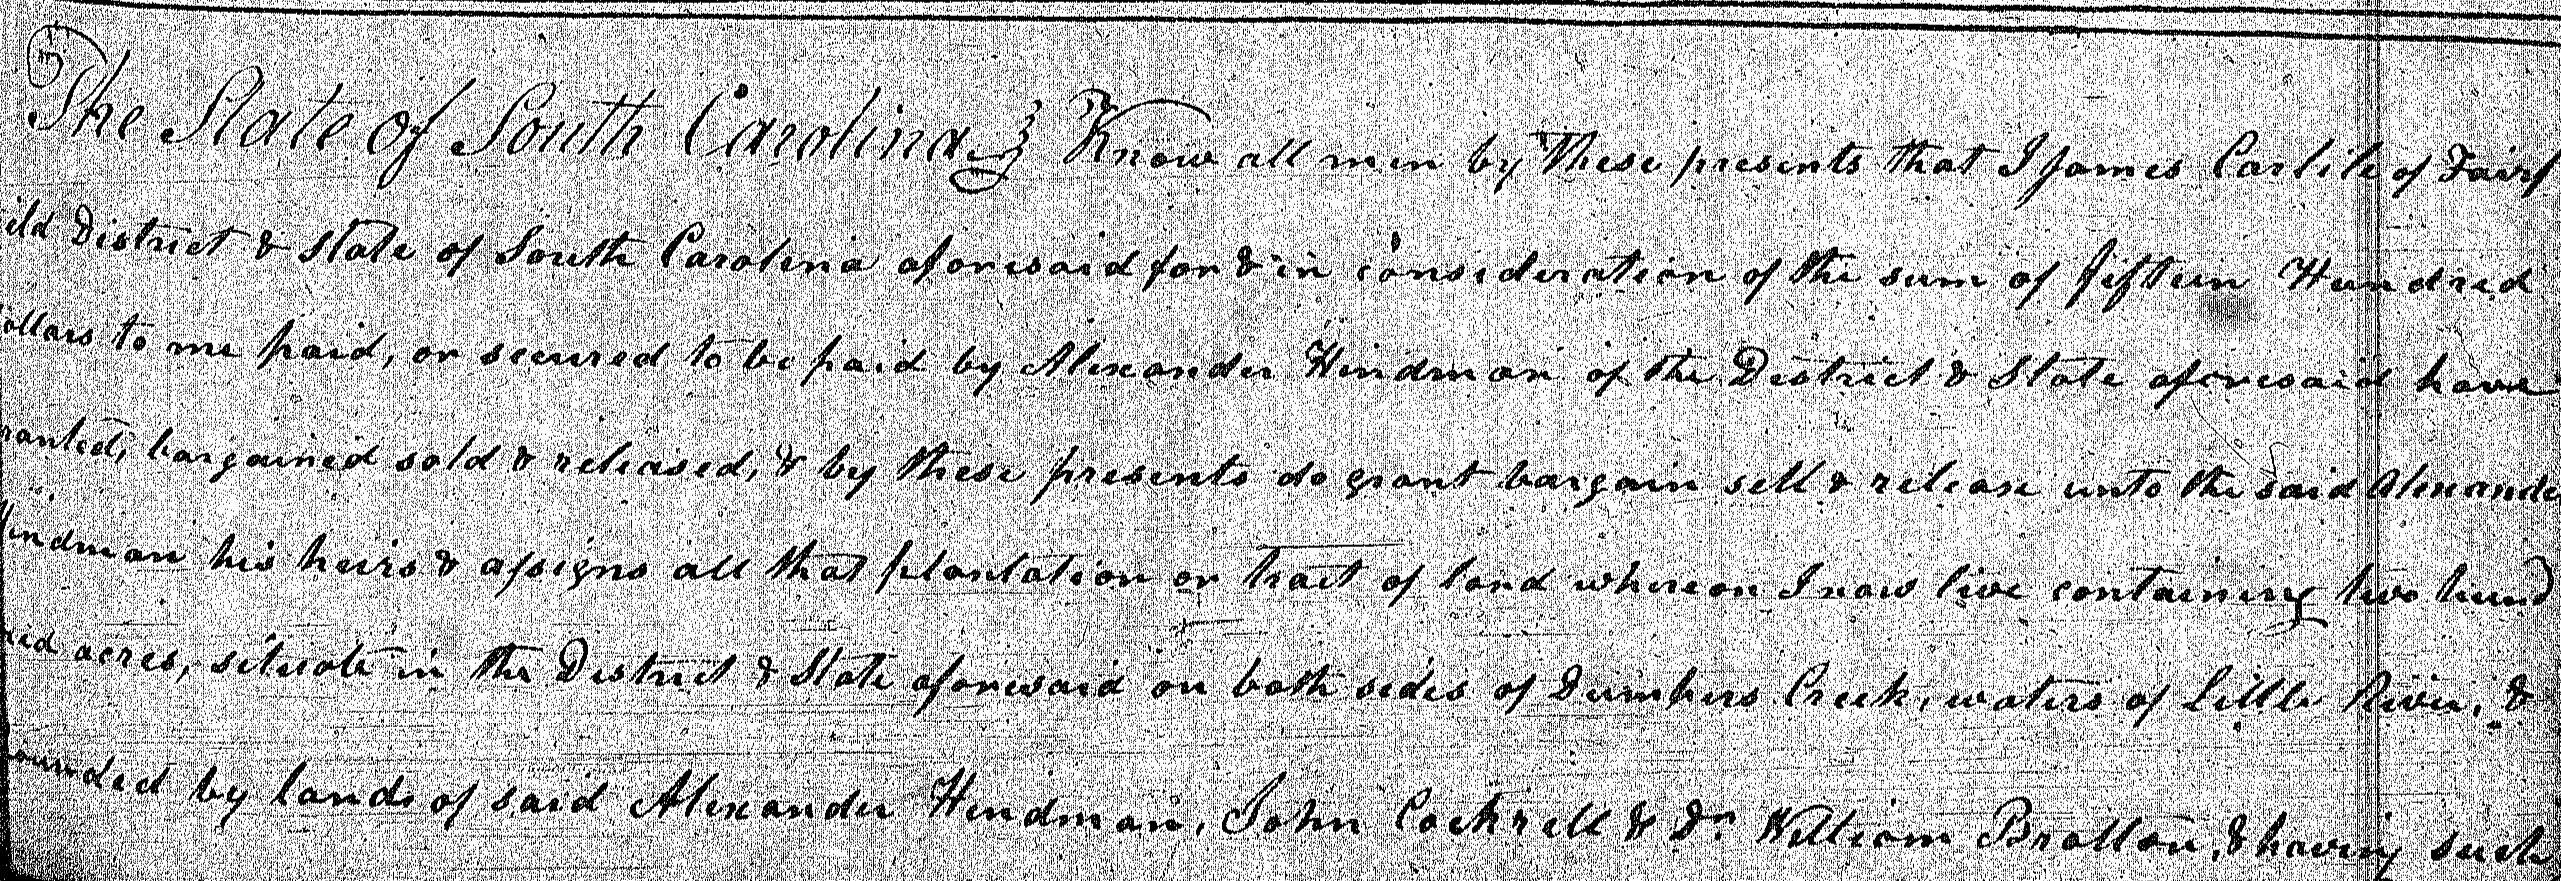 The State of South Carolina } Know all men by These presents that I James Carlile of Fairf
ild District & State of South Carolina aforesaid for & in consideration of the sum of fifteen Hundred
ollars to me paid, or secured to be paid by Alexander Hindman of the District & State aforesaid have
ranted, bargained sold & released, & by these presents do grant bargain sell & release unto the said Alexande
Hindman his heirs & assigns all that plantation or tract of land whereon I now live containing two hund
red acres, situate in the District & State aforesaid on both sides of Dumpers Creek, waters of Little River, &
ounded by lands of said Alexander Hindman, John Cockrell & Dr William Bratton, & having such